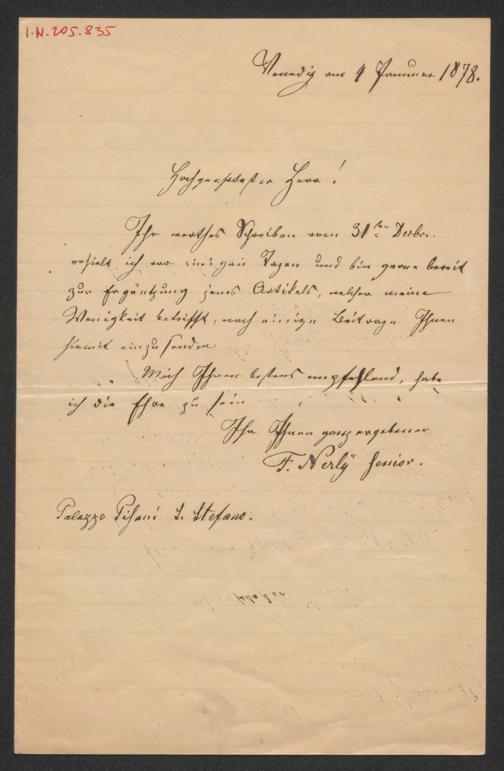 I.N. 205.835
Venedig am 9 Januar 1878.
Hochgeehrtester Herr!
Ihr werthes Schreiben vom 31ten Decbr.
erhielt ich vor einigen Tagen und bin gerne bereit
zur Ergäntzung jenes Artikels, welcher meine
Wenigkeit betrifft, noch einige Beitrage Ihnen
hiemit einzusenden
Mich Ihnen bestens empfehlend, habe
ich die Ehre zu sein
Ihr Ihnen ganz ergebener
F. Nerlÿ senior.
Palazzo Pisani S. Stefano.